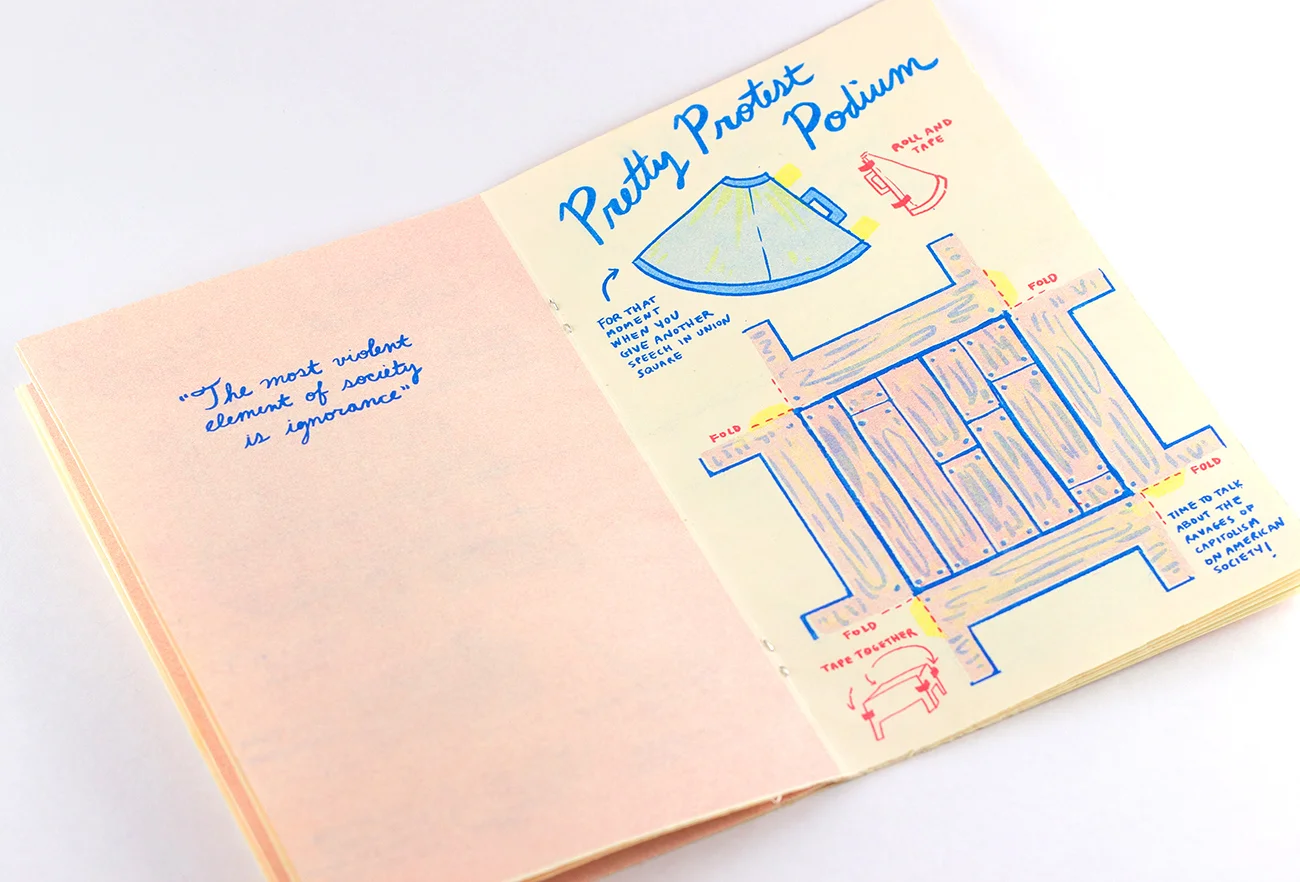 "The most violent
element of society
is ignorance"
Pretty Protest
Podium
ROLL AND
TAPE
FOR THAT
MOMENT
WHEN YOU
GIVE ANOTHER
SPEECH IN UNION
SQUARE
FOLD
FOLD
FOLD
TIME TO TALK
ABOUT THE
RAVAGES OF
CAPITOLISM
ON AMERICAN
SOCIETY!
FOLD
TAPE TOGETHER